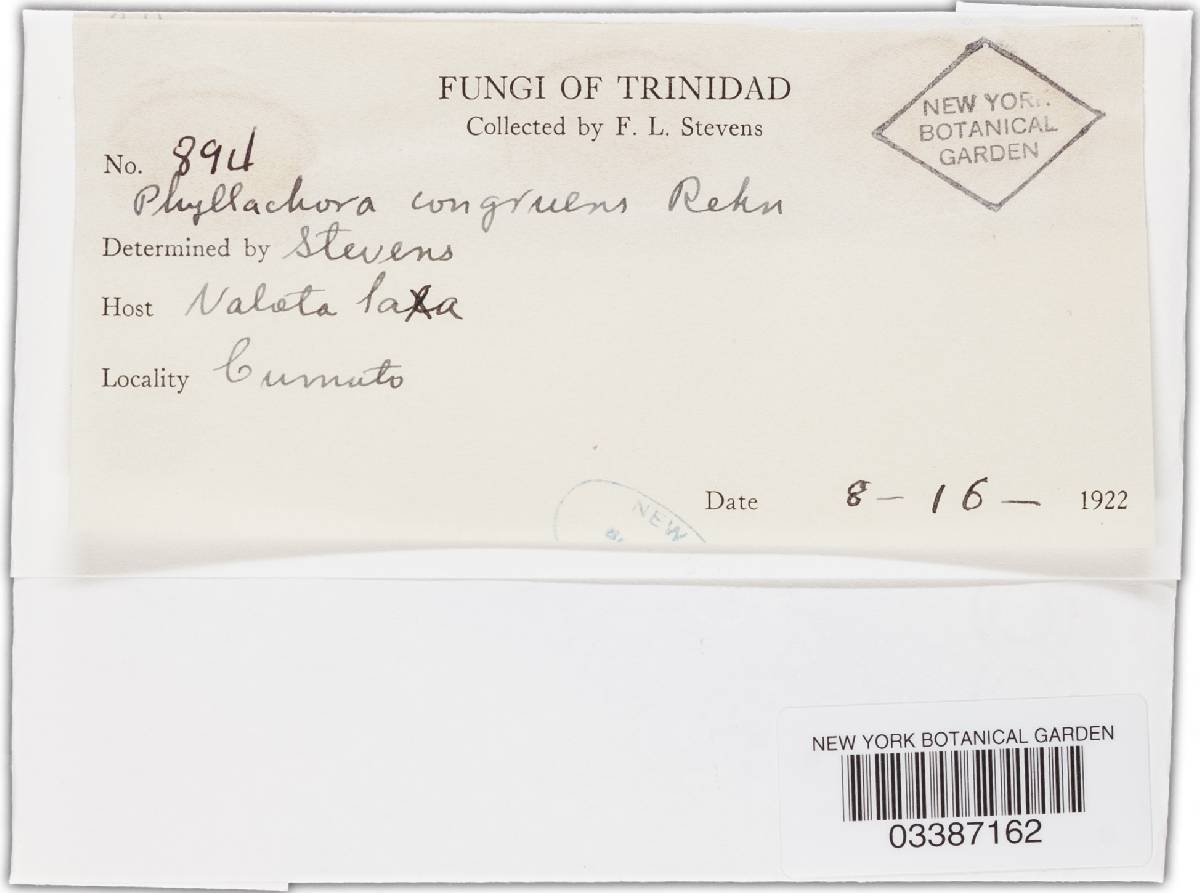 FUNGI OF TRINIDAD
Collected by F. L. Stevens
NEW YORK
BOTANICAL
GARDEN
No. 894
Phyllachora congruens Rehm
Determined by Stevens
Host Valota laxa
Locality Cumuto
Date 8-16- 1922
NEW
NEW YORK BOTANICAL GARDEN
03387162